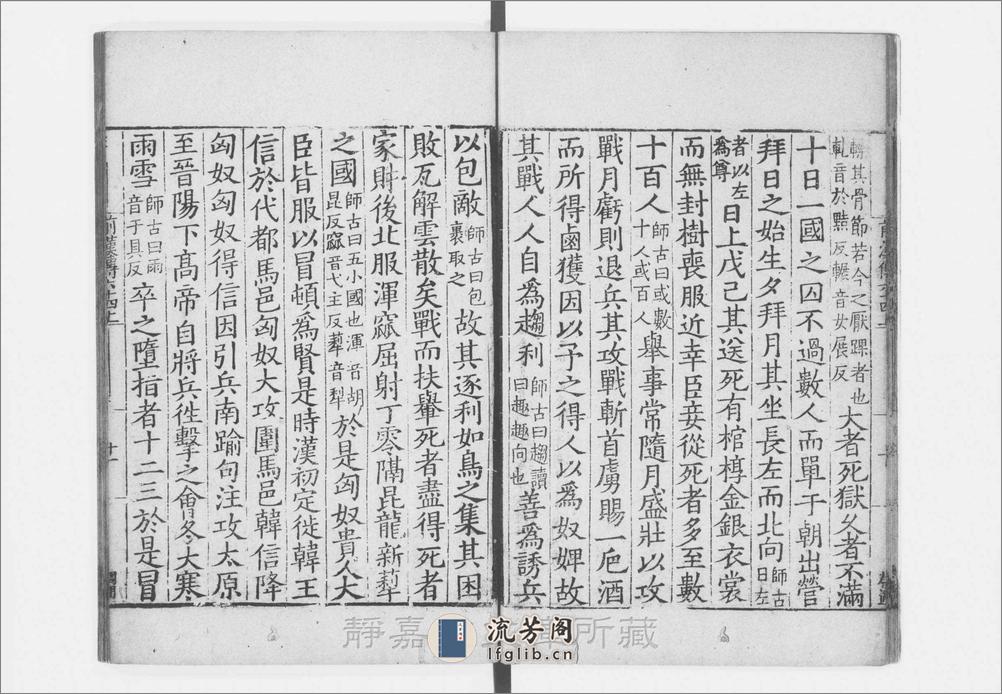 轢其骨節若今之厭踝者也
軋音於黠反輾音女展反
大者死獄久者不滿
十日一國之囚不過數人而單于朝出營
拜日之始生夕拜月其坐長左而北向
師古
曰左
者以左
爲尊
日上戊己其送死有棺椁金銀衣裳
而無封樹喪服近幸臣妾從死者多至數
十百人
師古曰或數
十人或百人
舉事常隨月盛壯以攻
戰月虧則退兵其攻戰斬首虜賜一巵酒
而所得鹵獲因以予之得人以爲奴婢故
其戰人人自爲趨利
師古曰趨讀
曰趣趣向也
善爲誘兵
以包敵
師古曰包
裹取之
故其逐利如鳥之集其困
敗瓦解雲散矣戰而扶轝死者盡得死者
家財後北服渾窳屈射丁零隔昆龍新犂
之國
師古曰五小國也渾音胡
昆反窳音弋主反犂音犁
於是匈奴貴人大
臣皆服以冒頓爲賢是時漢初定徙韓王
信於代都馬邑匈奴大攻圍馬邑韓信降
匈奴匈奴得信因引兵南踰句注攻太原
至晉陽下高帝自將兵徃擊之會冬大寒
雨雪
師古曰雨
音于具反
卒之墮指者十二三於是冒
前漢傳六十四上
十一
靜嘉
所藏
流芳阁
lfglib.cn